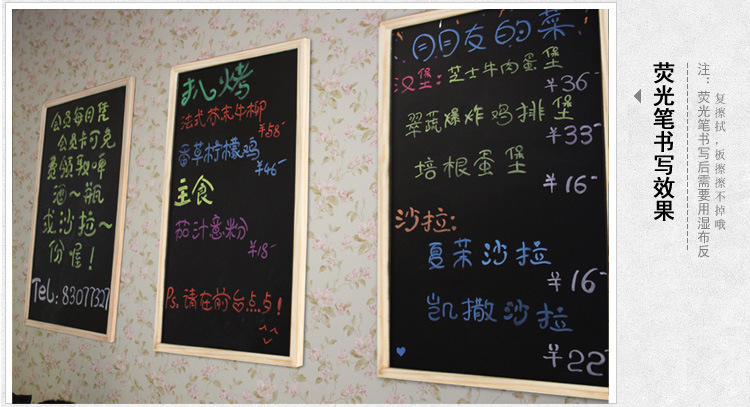 会员每月凭
会员卡可免
费领取啤
酒一瓶
或沙拉一
份喔！
Tel: 83077327
扒烤
法式芥末牛柳
¥58-
香草柠檬鸡
¥46-
主食
茄汁意粉
¥18-
Ps.请在前台点点！
^_^
日日友的菜
汉堡：芝士牛肉蛋堡
¥36-
翠蔬爆炸鸡排堡
¥33-
培根蛋堡
¥16-
沙拉：
夏茉沙拉
¥16-
凯撒沙拉
¥22-
荧光笔书写效果
注：荧光笔书写后需要用湿布反
复擦拭，板擦擦不掉哦